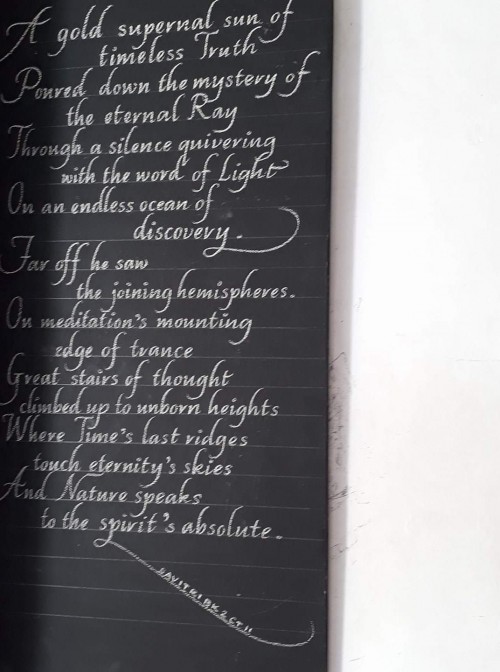 A gold supernal sun of
timeless Truth
Poured down the mystery of
the eternal Ray
Through a silence quivering
with the word of Light
On an endless ocean of
discovery.
Far off he saw
the joining hemispheres.
On meditation's mounting
edge of trance
Great stairs of thought
climbed up to unborn heights
Where Time's last ridges
touch eternity's skies
And Nature speaks
to the spirit's absolute.
SAVITRI BK 2 CT 11